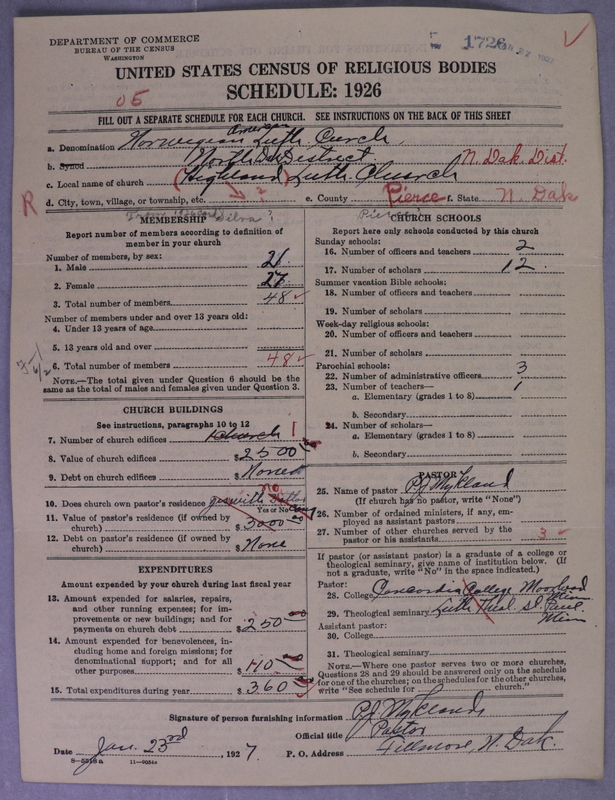 DEPARTMENT OF COMMERCE
BUREAU OF THE CENSUS
WASHINGTON
1726
UNITED STATES CENSUS OF RELIGIOUS BODIES
SCHEDULE: 1926
05
FILL OUT A SEPARATE SCHEDULE FOR EACH CHURCH. SEE INSTRUCTIONS ON THE BACK OF THIS SHEET
American
a. Denomination Norwegian Luth. Curch,
b. Synod North Dak District N. Dak. Dist.
c. Local name of church (Highland) Luth. Church
R d. City, town, village, or township, etc. ? e. County Pierce f. State N. Dak
Silva ? Pierce
MEMBERSHIP
Report number of members according to definition of member in your church
Number of members, by sex:
1. Male 21
2. Female 27
3. Total number of members 48
Number of members under and over 13 years old:
4. Under 13 years of age
5. 13 years old and over
6. Total number of members 48
NOTE.—The total given under Question 6 should be the
same as the total of males and females given under Question 3.
CHURCH BUILDINGS
See instructions, paragraphs 10 to 12
7. Number of church edifices 1 church 1
8. Value of church edifices $2500
9. Debt on church edifices $None
10. Does church own pastor's residence no
Yes or No
11. Value of pastor's residence (if owned by
church) $5000
12. Debt on pastor's residence (if owned by
church) $None
EXPENDITURES
Amount expended by your church during last fiscal year
13. Amount expended for salaries, repairs,
and other running expenses; for im-
provements or new buildings; and for
payments on church debt $250
14. Amount expended for benevolences, in-
cluding home and foreign missions; for
denominational support; and for all
other purposes $110
15. Total expenditures during year $360
CHURCH SCHOOLS
Report here only schools conducted by this church
Sunday schools:
16. Number of officers and teachers 2
17. Number of scholars 12
Summer vacation Bible schools:
18. Number of officers and teachers
19. Number of scholars
Week-day religious schools:
20. Number of officers and teachers
21. Number of scholars
Parochial schools:
22. Number of administrative officers 3
23. Number of teachers— 1
a. Elementary (grades 1 to 8)
b. Secondary
24. Number of scholars—
a. Elementary (grades 1 to 8)
b. Secondary
PASTOR
25. Name of pastor P.J. Mykland
(If church has no pastor, write "None")
26. Number of ordained ministers, if any, em-
ployed as assistant pastors
27. Number of other churches served by the
pastor or his assistants 3
If pastor (or assistant pastor) is a graduate of a college or
theological seminary, give name of institution below. (If
not a graduate, write "No" in the space indicated.)
Pastor:
28. College Concordia College Moorhead Minn
29. Theological seminary Luth. Theol. St. Paul, Minn
Assistant pastor:
30. College
31. Theological seminary
NOTE.—Where one pastor serves two or more churches,
Questions 28 and 29 should be answered only on the schedule
for one of the churches; on the schedules for the other churches,
write "See schedule for ______ church."
Signature of person furnishing information P.J. Mykland
Official title Pastor
Date Jan. 23rd, 1927 P. O. Address Fillmore, N. Dak.
8—5516a 11—9054a